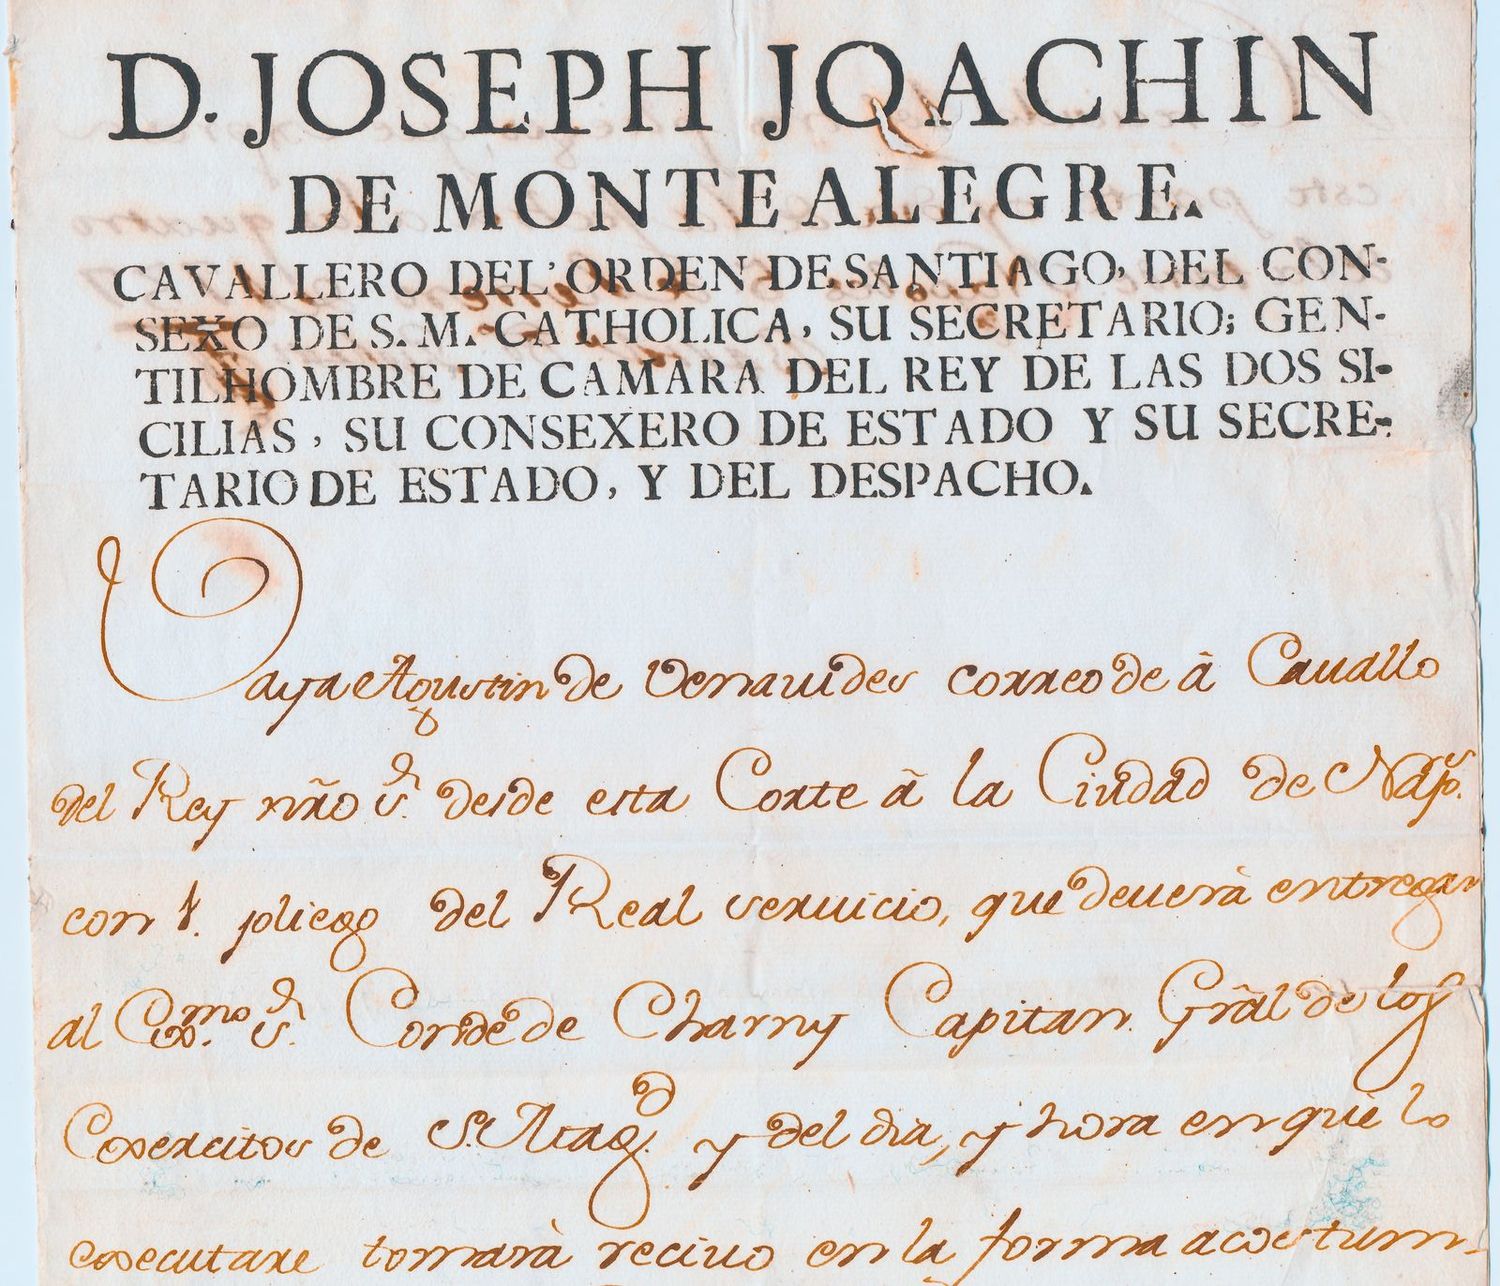 D. JOSEPH JOACHIN
DE MONTEALEGRE.
CAVALLERO DEL'ORDEN DE SANTIAGO, DEL CON-
SEXO DE S. M. CATHOLICA, SU SECRETARIO; GEN-
TILHOMBRE DE CAMARA DEL REY DE LAS DOS SI-
CILIAS, SU CONSEXERO DE ESTADO Y SU SECRE-
TARIO DE ESTADO, Y DEL DESPACHO.
Vaya Agustin de Venauides correo de à Cauallo
del Rey nr̃o S.r desde esta Corte à la Ciudad de Nap.s
con 1. pliego del Real seruicio, que deuerà entregar
al Ex.mo S.r Conde de Charny Capitan Gr̃al de los
Exercitos de S. Mag.d y del dia, y hora en que lo
executare tomarà reciuo en la forma acostum-